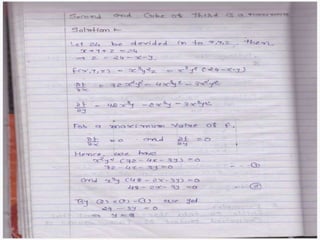 Second and Cube of Third is a maximum
Solution:-
Let 24 be devided in to x,y,z, then,
x+y+z = 24
⇒ z = 24-x-y,
f(x,y,z) = x³y²z = x³y² (24-x-y)
∂f/∂x = 72x²y² - 4x³y² - 3x²y³
∂f/∂y = 48x³y - 2x⁴y - 3x³y²
For a maximum value of f,
∂f/∂x = 0 and ∂f/∂y = 0
Hence, we have
x²y² (72-4x-3y) = 0
72-4x-3y = 0 --- ①
and x³y (48-2x-3y) = 0
48-2x-3y = 0 --- ②
By
we get
24-3y = 0
y = 8